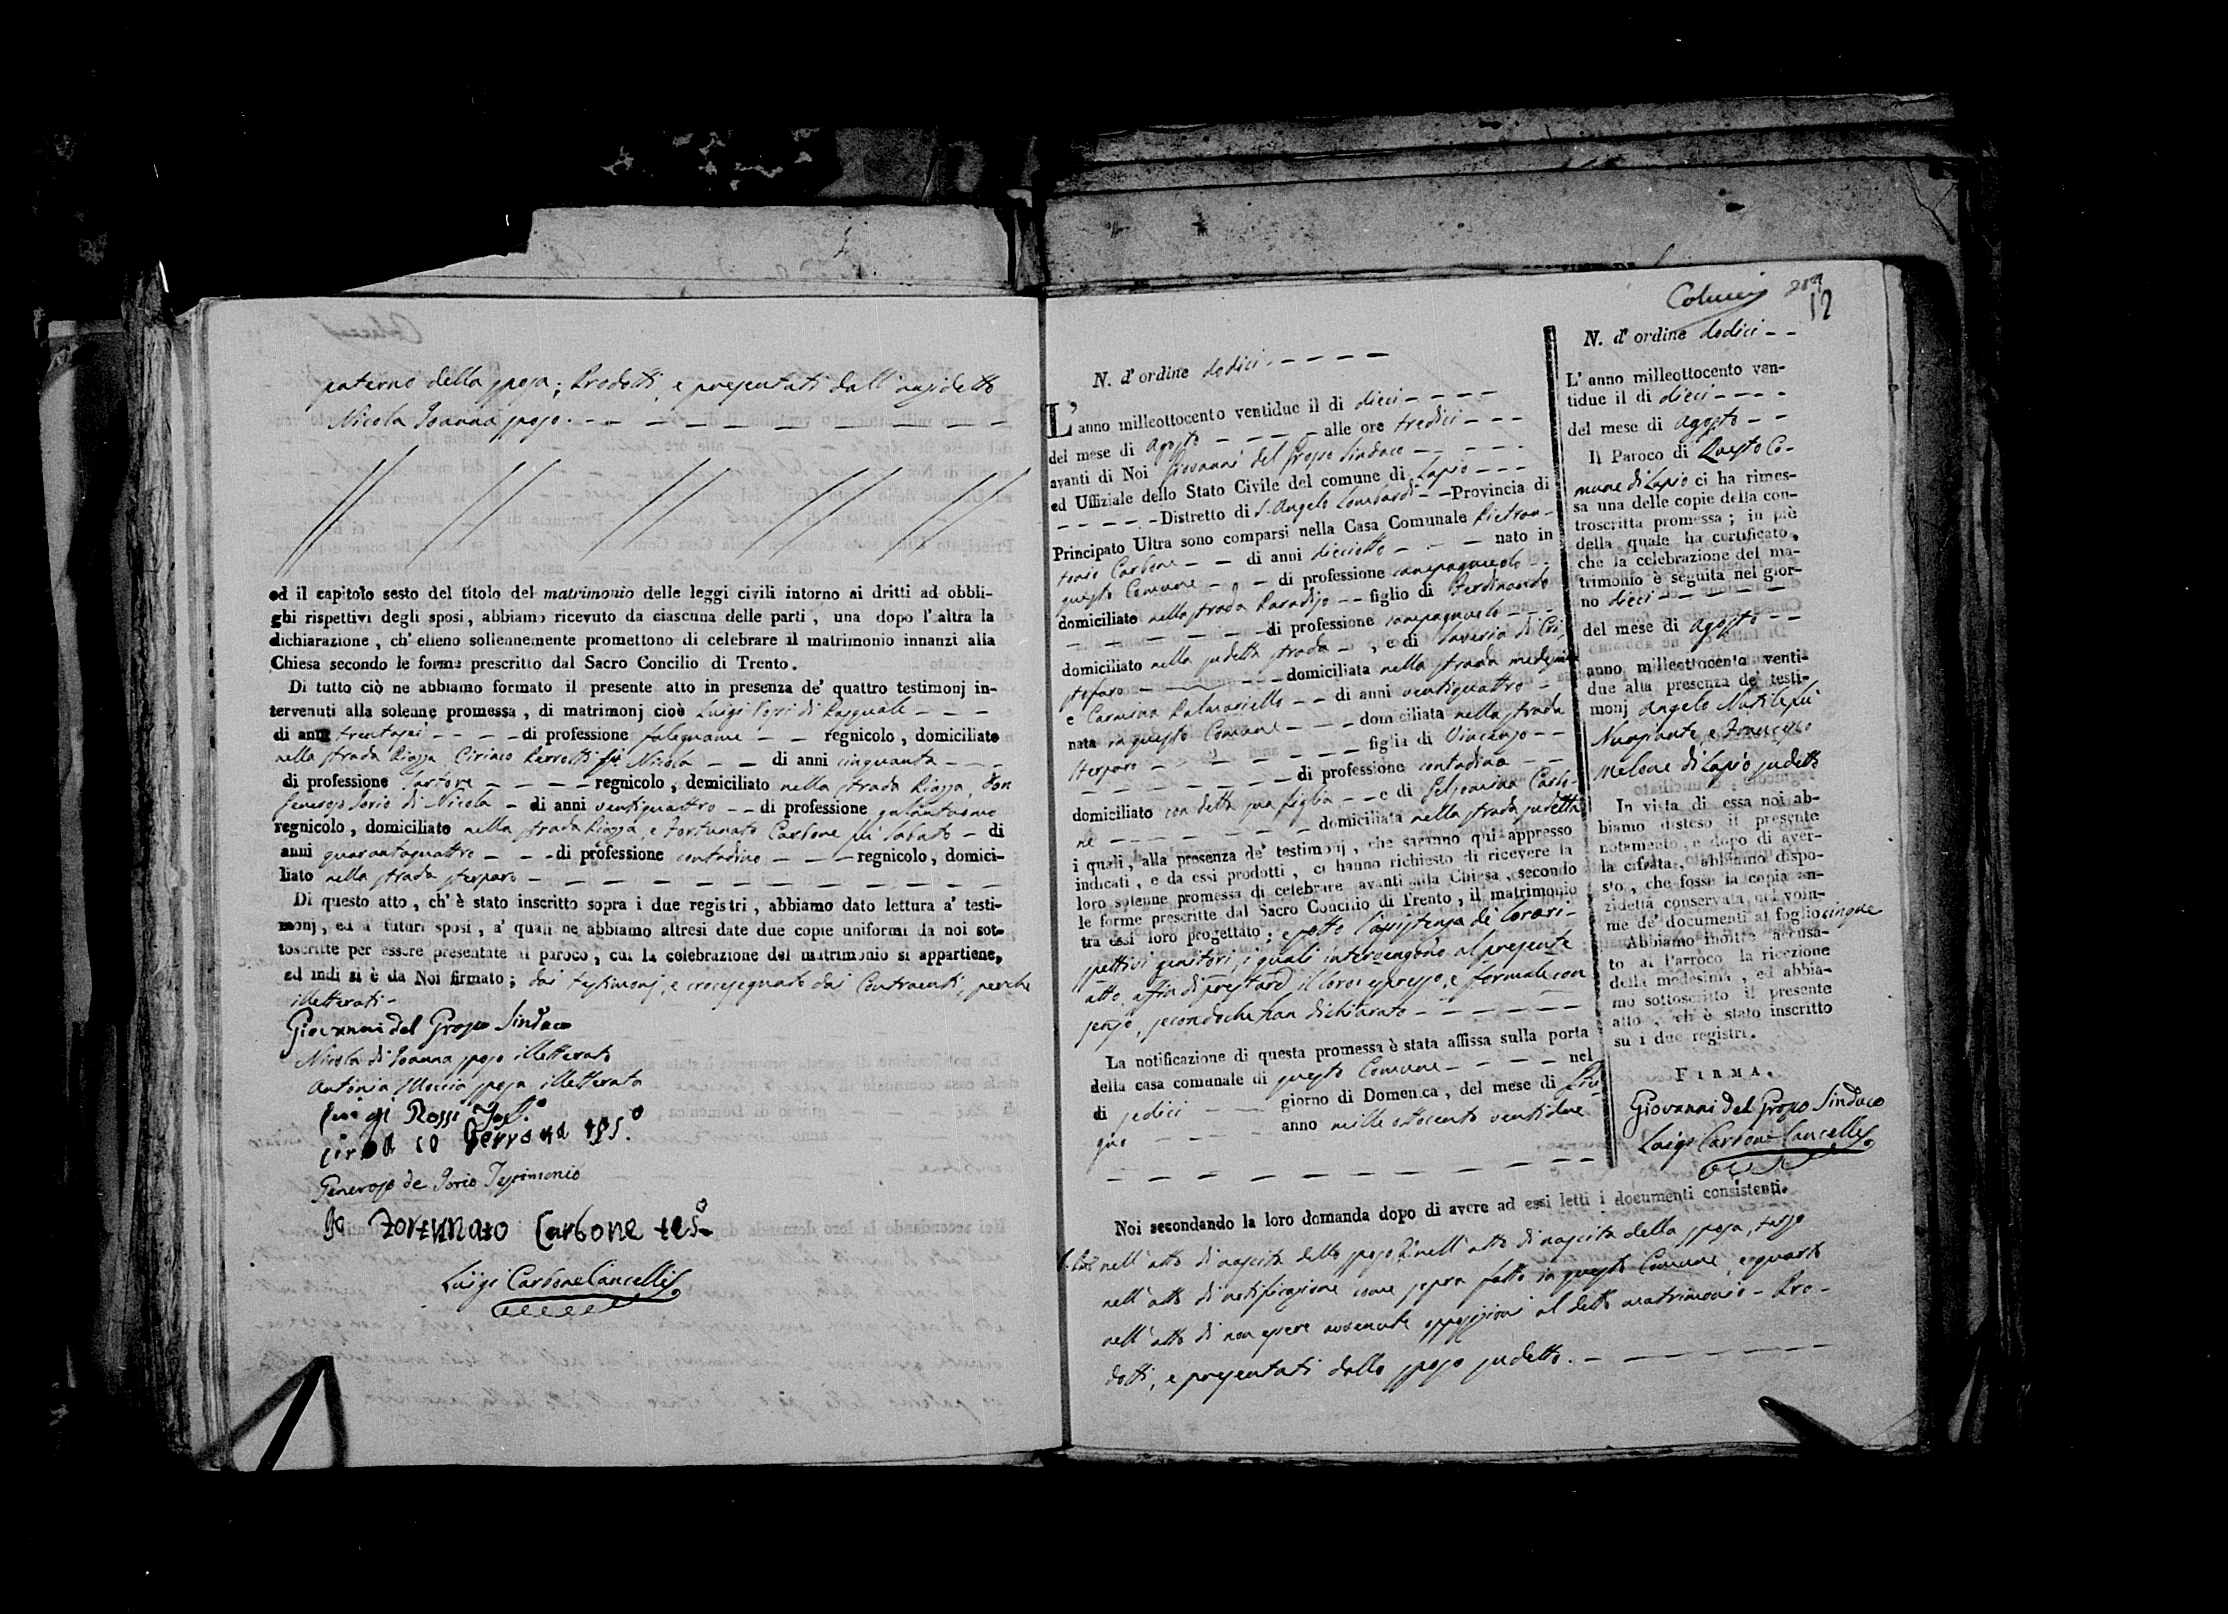 paterno della sposa; Prodotti, e presentati dall'anzidetto
Nicola Joanna sposo. — — — — — — — —
ed il capitolo sesto del titolo del matrimonio delle leggi civili intorno ai dritti ad obbli-
ghi rispettivi degli sposi, abbiamo ricevuto da ciascuna delle parti, una dopo l'altra la
dichiarazione, ch'elleno sollennemente promettono di celebrare il matrimonio innanzi alla
Chiesa secondo le forme prescritto dal Sacro Concilio di Trento.
Di tutto ciò ne abbiamo formato il presente atto in presenza de' quattro testimonj in-
tervenuti alla solenne promessa, di matrimonj cioè Luigi Rossi di Pasquale — — —
di anni trentasei — — — — di professione falegname — — regnicolo, domiciliato
nella strada Piazza, Ciriaco Perrotti fù Nicola — — di anni cinquanta — — —
di professione Sartore — — — — regnicolo, domiciliato nella strada Piazza, Don
Generoso Iorio di Nicola — di anni ventiquattro — — di professione galantuomo
regnicolo, domiciliato nella strada Piazza, e Fortunato Carbone fù Sabato — di
anni quarantaquattro — — — di professione contadino — — — regnicolo, domici-
liato nella strada sterparo — — — — — — — — — — — —
Di questo atto, ch'è stato inscritto sopra i due registri, abbiamo dato lettura a' testi-
monj, ed a' futuri sposi, a' quali ne abbiamo altresì date due copie uniformi da noi sot-
toscritte per essere presentate al paroco, cui la celebrazione del matrimonio si appartiene,
ed indi si è da Noi firmato; dai testimonj, e crocesegnato dai Contraenti, perche
illetterati —
Giovanni del Grosso Sindaco
Nicola di Joanna sposo illetterato
Antonia Moccia sposa illetterata
Luigi Rossi Test.°
Generoso de Iorio Testimonio
Io Fortunato Carbone tes°
Luigi Carbone Cancell.
Colucci
12
N. d'ordine dodici — — — — —
L'anno milleottocento ventidue il di dieci — — — —
del mese di Agosto — — — — alle ore tredici — — —
avanti di Noi Giovanni del Grosso Sindaco — — — — —
ed Uffiziale dello Stato Civile del comune di Lapio — — —
— — — — — Distretto di S. Angelo Lombardi — — Provincia di
Principato Ultra sono comparsi nella Casa Comunale Pietran-
tonio Carbone — — di anni dieciotto — — — nato in
questo Comune — — — di professione campagnuolo —
domiciliato nella strada Paradiso — — figlio di Ferdinando
— — — — — — — di professione campagnuolo — — —
domiciliato nella sudetta strada —, e di Saveria di Cri-
stofaro — — — — domiciliata nella strada medesima
e Carmina Palmariello — — di anni ventiquattro —
nata in questo Comune — — — domiciliata nella strada
Sterparo — — — — — — — figlia di Vincenzo — —
— — — — — — — di professione contadino — —
domiciliato con detta sua figlia — — e di Gelsomina Carbo-
ne — — — — — — — domiciliata nella strada sudetta
i quali, alla presenza de' testimonj, che saranno qui appresso
indicati, e da essi prodotti, ci hanno richiesto di ricevere la
loro solenne promessa di celebrare avanti alla Chiesa, secondo
le forme prescritte dal Sacro Concilio di Trento, il matrimonio
tra essi loro progettato; e sotto l'assistenza de' loro ri-
spettivi genitori, i quali intervengono al presente
atto, affin di prestare il loro espresso, e formale con-
senso, secondoche han dichiarato — — — — — —
La notificazione di questa promessa è stata affissa sulla porta
della casa comunale di questo Comune — — — — nel
di sedici — — giorno di Domenica, del mese di Giu-
gno — — — — — anno mille ottocento ventidue
— — — — — — — — — — —
N. d'ordine dodici — —
L'anno milleottocento ven-
tidue il di dieci — — — —
del mese di Agosto — —
Il Paroco di Questo Co-
mune di Lapio ci ha rimes-
sa una delle copie della con-
troscritta promessa; in piè
della quale ha certificato,
che la celebrazione del ma-
trimonio è seguita nel gior-
no dieci — — — — —
del mese di Agosto — —
anno milleottocento venti-
due alla presenza de' testi-
monj Angelo Mastilepii
Nunziante, e Francesco
Melone di Lapio sudetto
In vista di essa noi ab-
biamo disteso il presente
notamento, e dopo di aver-
la cifrata, abbiamo dispo-
sto, che fosse la copia an-
zidetta conservata nel volu-
me de' documenti al foglio cinque
Abbiamo inoltre accusa-
to al Parroco la ricezione
della medesima, ed abbia-
mo sottoscritto il presente
atto, ch'è stato inscritto
su i due registri.
FIRMA.
Giovanni del Grosso Sindaco
Luigi Carbone Cancell.
Noi secondando la loro domanda dopo di avere ad essi letti i documenti consistenti.
nell'atto di nascita dello sposo, 2.° nell'atto di nascita della sposa, terzo
nell'atto di notificazione come sopra fatto in questo Comune, e quarto
nell'atto di non essere avvenute opposizioni al detto matrimonio — Pro-
dotti, e presentati dallo sposo sudetto. — — — — — — —